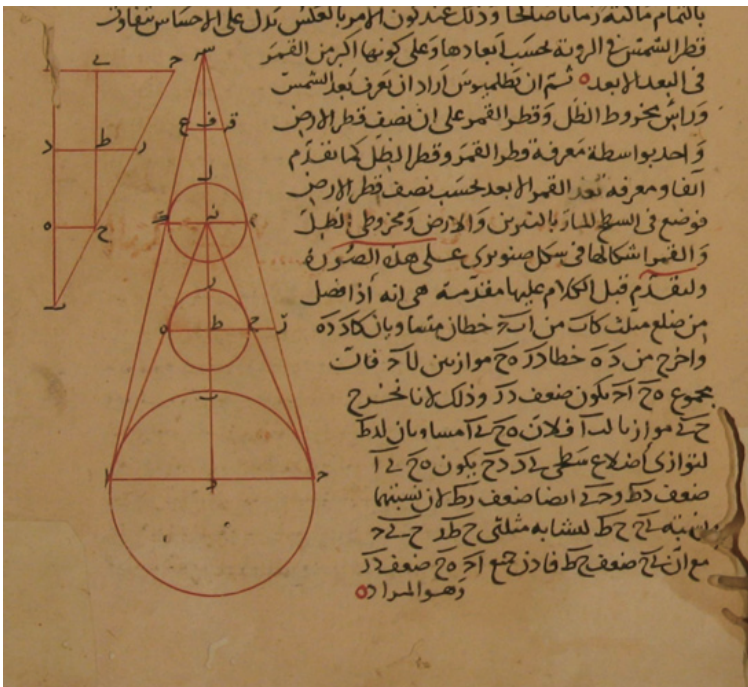 بالتمام مالبثه زمانا صالحا وذلك عند كون الامر بالعكس يدل على الاحساس بتفاوت
قطر الشمس في الروية بحسب ابعادها وعلى كونها اكبر من القمر
في البعد الابعد ثم ان بطلميوس اراد ان يعرف بعد الشمس
وراس مخروط الظل وقطر القمر على ان نصف قطر الارض
واحد بواسطة معرفة قطر القمر وقطر الظل كما تقدم
آنفا ومعرفة بعد القمر الابعد بحسب نصف قطر الارض
فوضع في السطح المار بالنيرين والارض ومخروطي الظل
والقمر اشكالها في شكل صنوبري على هذه الصورة
ولنقدم قبل الكلام عليها مقدمة هي انه اذا فصل
من ضلع مثلث كاب من خطان متساويان كا د ده
واخرج من د ه خطا در ه ح موازيين لا ح فان
مجموع ه ح اح يكون ضعف در وذلك لانا نخرج
ح ى موازيا لب ا فلان ه ح ى ا مساويان لد ط
لتوازي اضلاع سطحي يكون ه ح ى ا
ضعف دط و ح ى ايضا ضعف رط لان نسبتهما
نسبة ى ح ح ط لتشابه مثلثي ح ط ر ح ى ح
مع ان ى ح ضعف ح ط فاذن جميع اح ه ح ضعف در
وهو المراد
ى
ح
د
ط
ر
ه
ح
ب
س
ع
ف
ق
ل
ن
م
ر
ه
ط
ح
ب
ا
د
ح